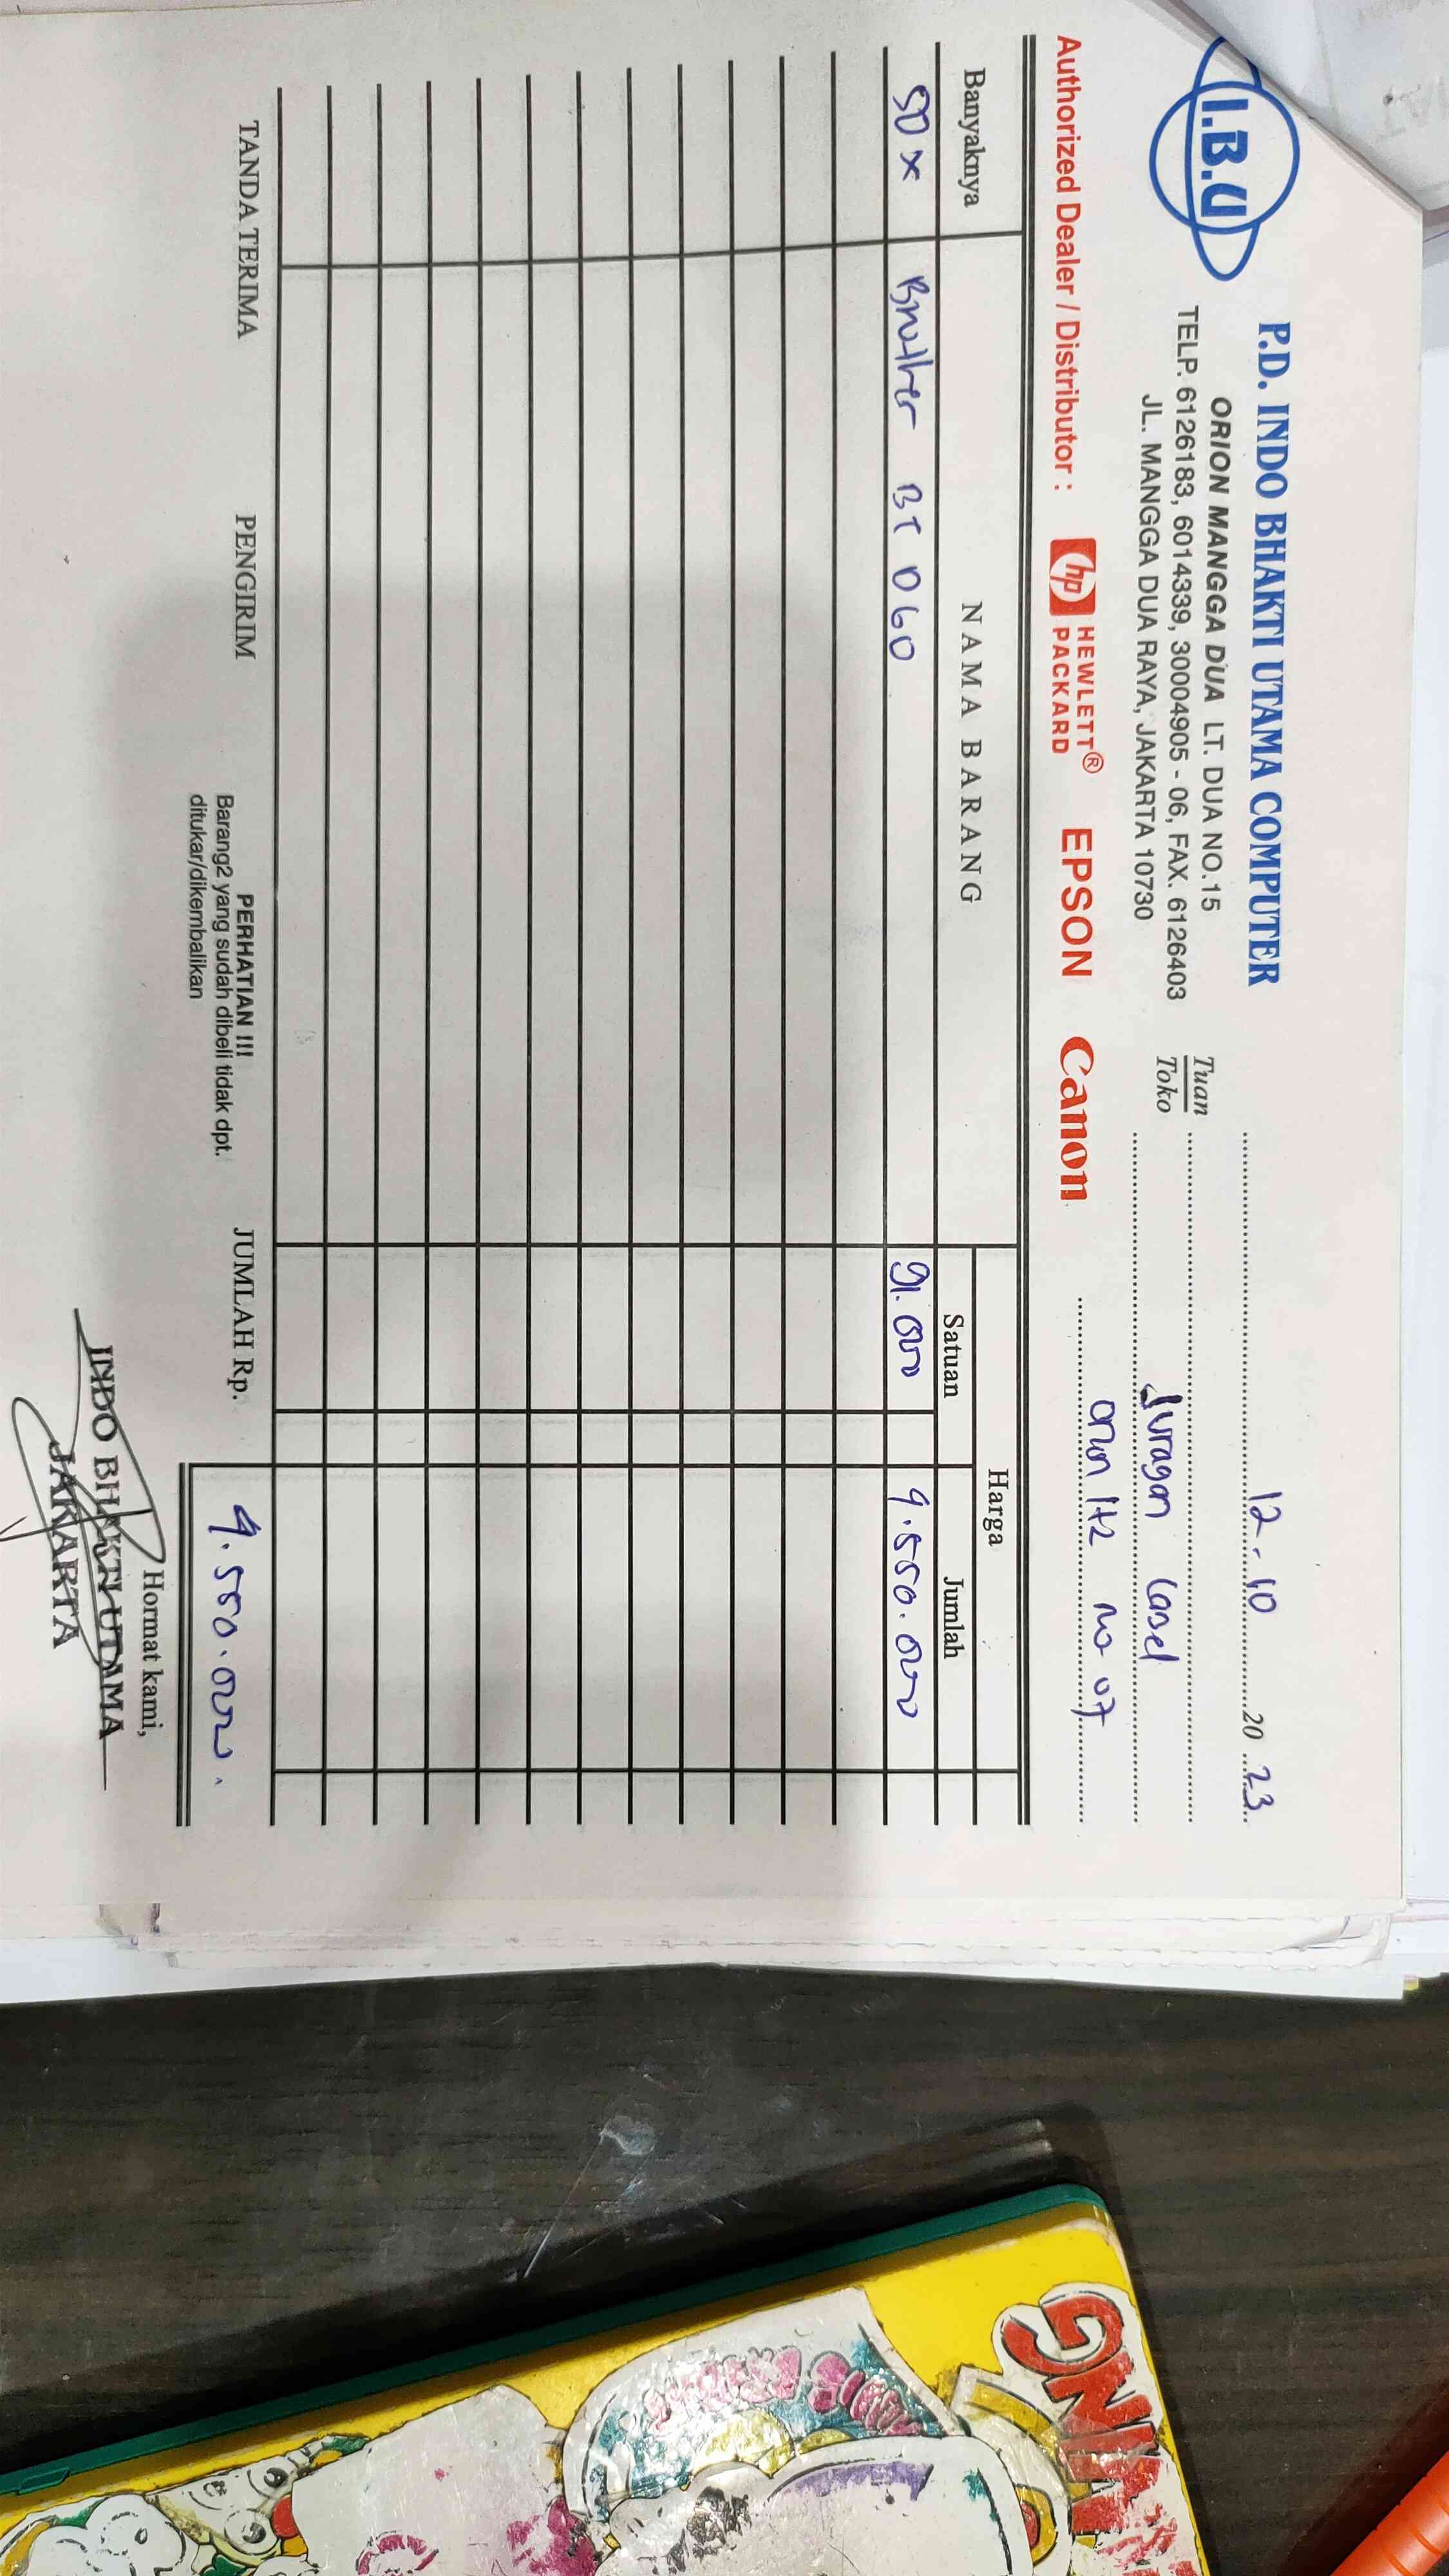 I.B.U
P.D. INDO BHAKTI UTAMA COMPUTER
ORION MANGGA DUA LT. DUA NO.15
TELP. 6126183, 6014339, 30004905 - 06, FAX. 6126403
JL. MANGGA DUA RAYA, JAKARTA 10730
12 - 10 20 23
Tuan
Toko
Juragan Lasel
orion lt2 no 07
Authorized Dealer / Distributor : hp HEWLETT® PACKARD EPSON Canon
Banyaknya NAMA BARANG Harga
Satuan Jumlah
50 x Brother BT D60 91.000 4.550.000
TANDA TERIMA PENGIRIM JUMLAH Rp. 4.550.000
PERHATIAN !!!
Barang2 yang sudah dibeli tidak dpt.
ditukar/dikembalikan
Hormat kami,
INDO BHAKTI UTAMA
JAKARTA